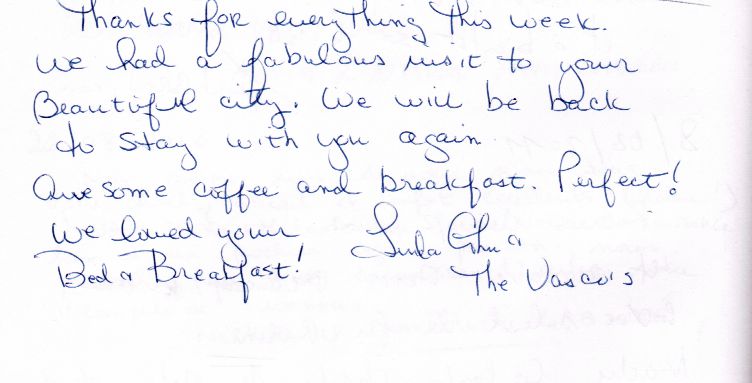 Thanks for everything this week.
We had a fabulous visit to your
Beautiful city. We will be back
to stay with you again.
Awesome coffee and breakfast. Perfect!
We loved your
Bed & Breakfast!
Linda
The